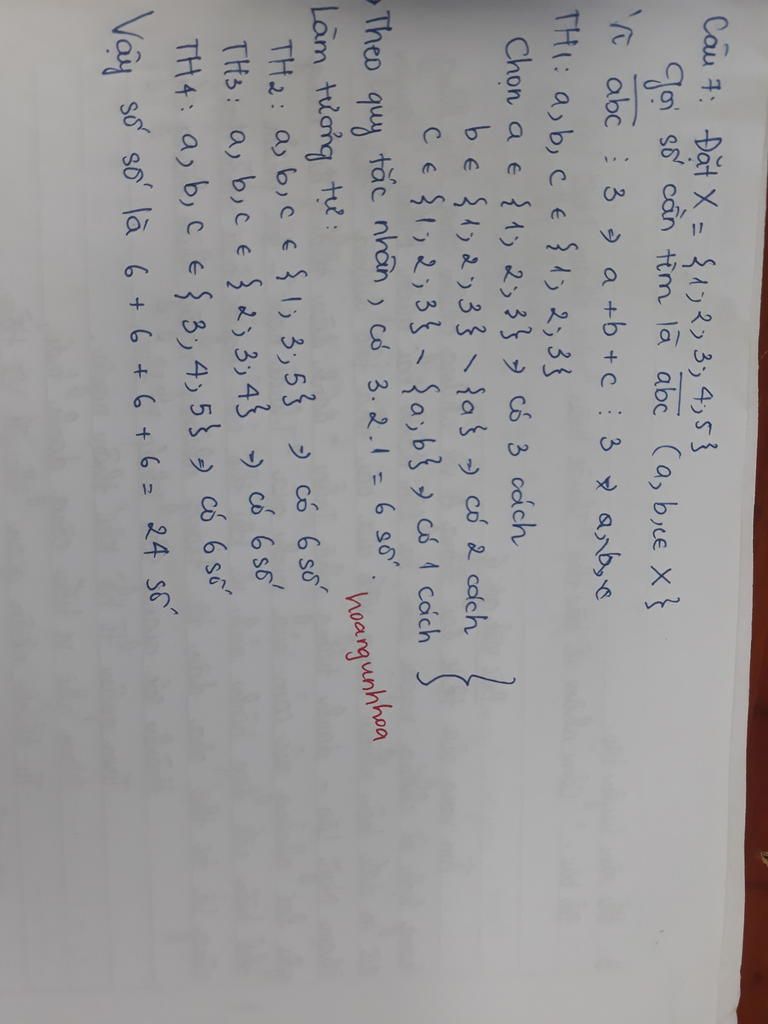 Câu 7: Đặt X = {1; 2; 3; 4; 5}
Gọi số cần tìm là abc (a, b, c ∈ X}
Vì abc ⋮ 3 => a + b + c ⋮ 3 => a, b, c
TH1: a, b, c ∈ {1; 2; 3}
Chọn a ∈ {1; 2; 3} => có 3 cách
b ∈ {1; 2; 3} \ {a} => có 2 cách
c ∈ {1; 2; 3} \ {a; b} => có 1 cách }
Theo quy tắc nhân, có 3.2.1 = 6 số.
hoangunhhoa
Làm tương tự:
TH2: a, b, c ∈ {1; 3; 5} => có 6 số
TH3: a, b, c ∈ {2; 3; 4} => có 6 số
TH4: a, b, c ∈ {3; 4; 5} => có 6 số
Vậy số số là 6 + 6 + 6 + 6 = 24 số